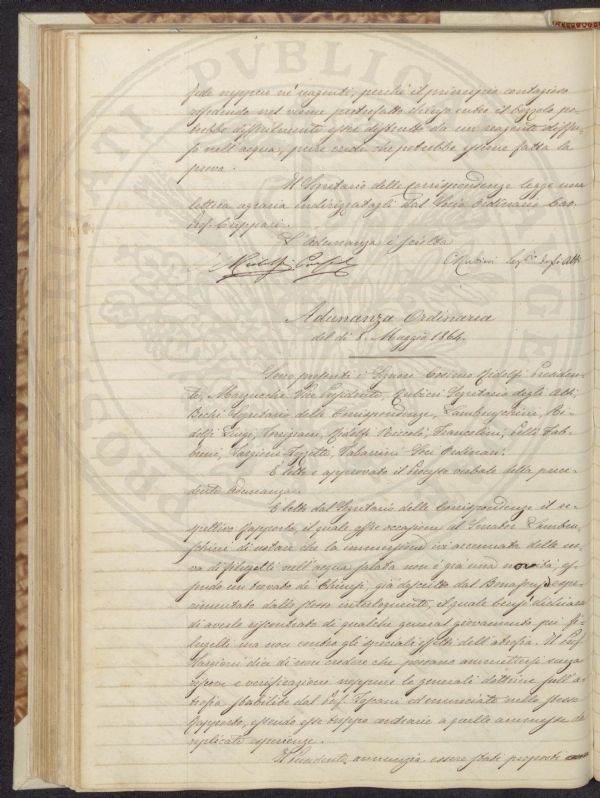 fede neppure ai reagenti, perchè il principio contagioso
risiedendo nel verme putrefatto chiuso entro il bozzolo po-
trebbe difficilmente essere distrutto da un reagente diffu-
so nell'acqua, pure crede che potrebbe essere fatta la
prova.
Il Segretario delle Corrispondenze legge una
lettera agraria indirizzatagli dal Socio Ordinario Cav.
Prof. Cuppari.
L'Adunanza è sciolta
Ridolfi Presid. Rubieri Seg. degli Atti
Adunanza Ordinaria
del dì 8. Maggio 1864.
Sono presenti i Signori Cosimo Ridolfi Presiden-
te, Marzucchi Vice Presidente, Rubieri Segretario degli Atti,
Bechi Segretario delle Corrispondenze, Lambruschini, Ri-
dolfi Luigi, Torrigiani, Ridolfi Niccolò, Francolini, Pelli Fab-
broni, Targioni Tozzetti, Vasarrini Soci Ordinari.
È letto e approvato il Processo verbale della prece-
dente adunanza.
È letto dal Segretario delle Corrispondenze il re-
spettivo rapporto, il quale offre occasione al Senator Lambru-
schini di notare che la immersione ivi accennata delle uo-
va di filugelli nell'acqua salata non è già una novità, es-
sendo un trovato de' Chinesi, già descritto dal Bonafous e spe-
rimentato dallo stesso interloquente, il quale bensì dichiara
di averlo riscontrato di qualche general giovamento pei fi-
lugelli ma non contro gli speciali effetti dell'atrofia. Il Prof.
Targioni dice di non credere che possano ammettersi senza
riprove e verificazioni neppure le generali dottrine sull'a-
trofia stabilite dal Prof. ed enunciate nello stesso
rapporto, essendo esse troppo contrarie a quelle ammesse da
replicate esperienze.
Il Presidente annunzia essere stati proposti come